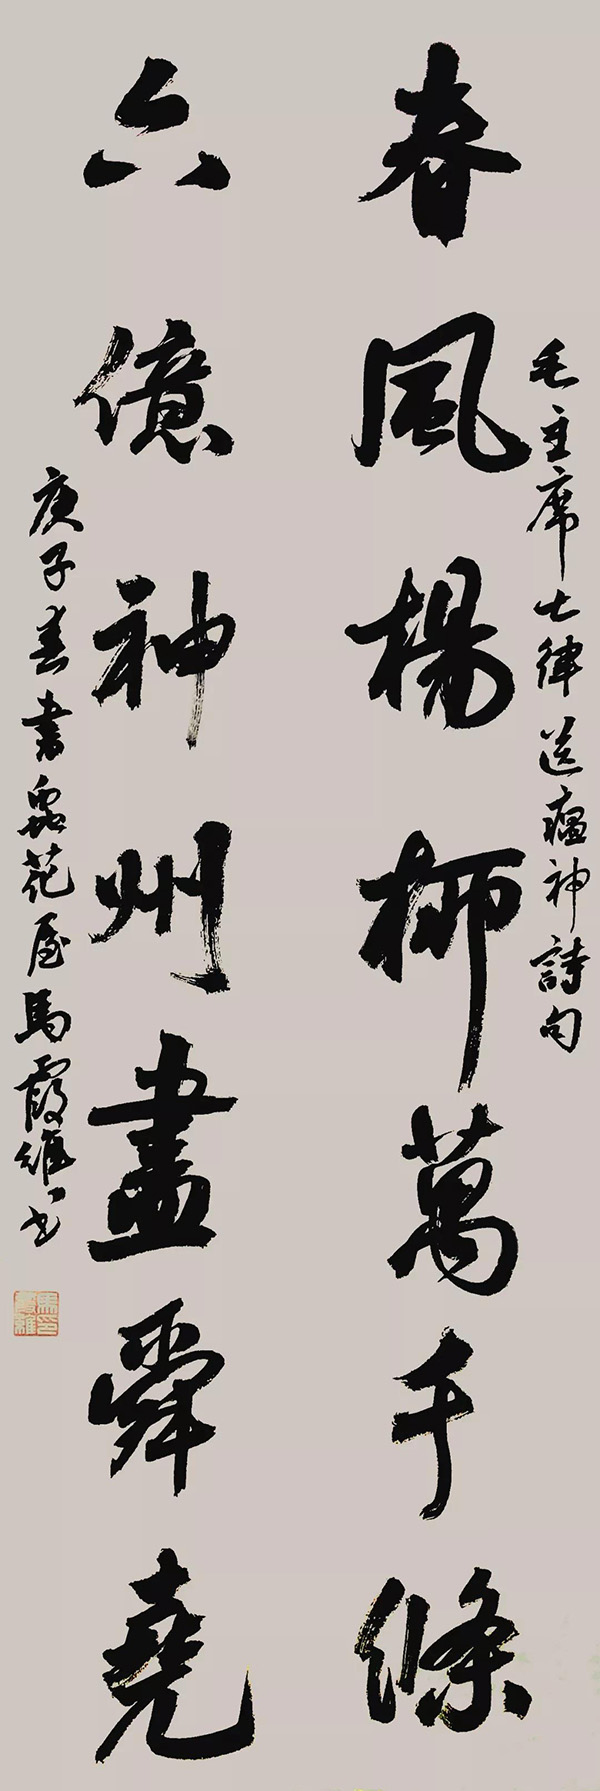 毛主席七律送瘟神詩句
春風楊柳萬千條
六億神州盡舜堯
庚子春書花屋馬霞